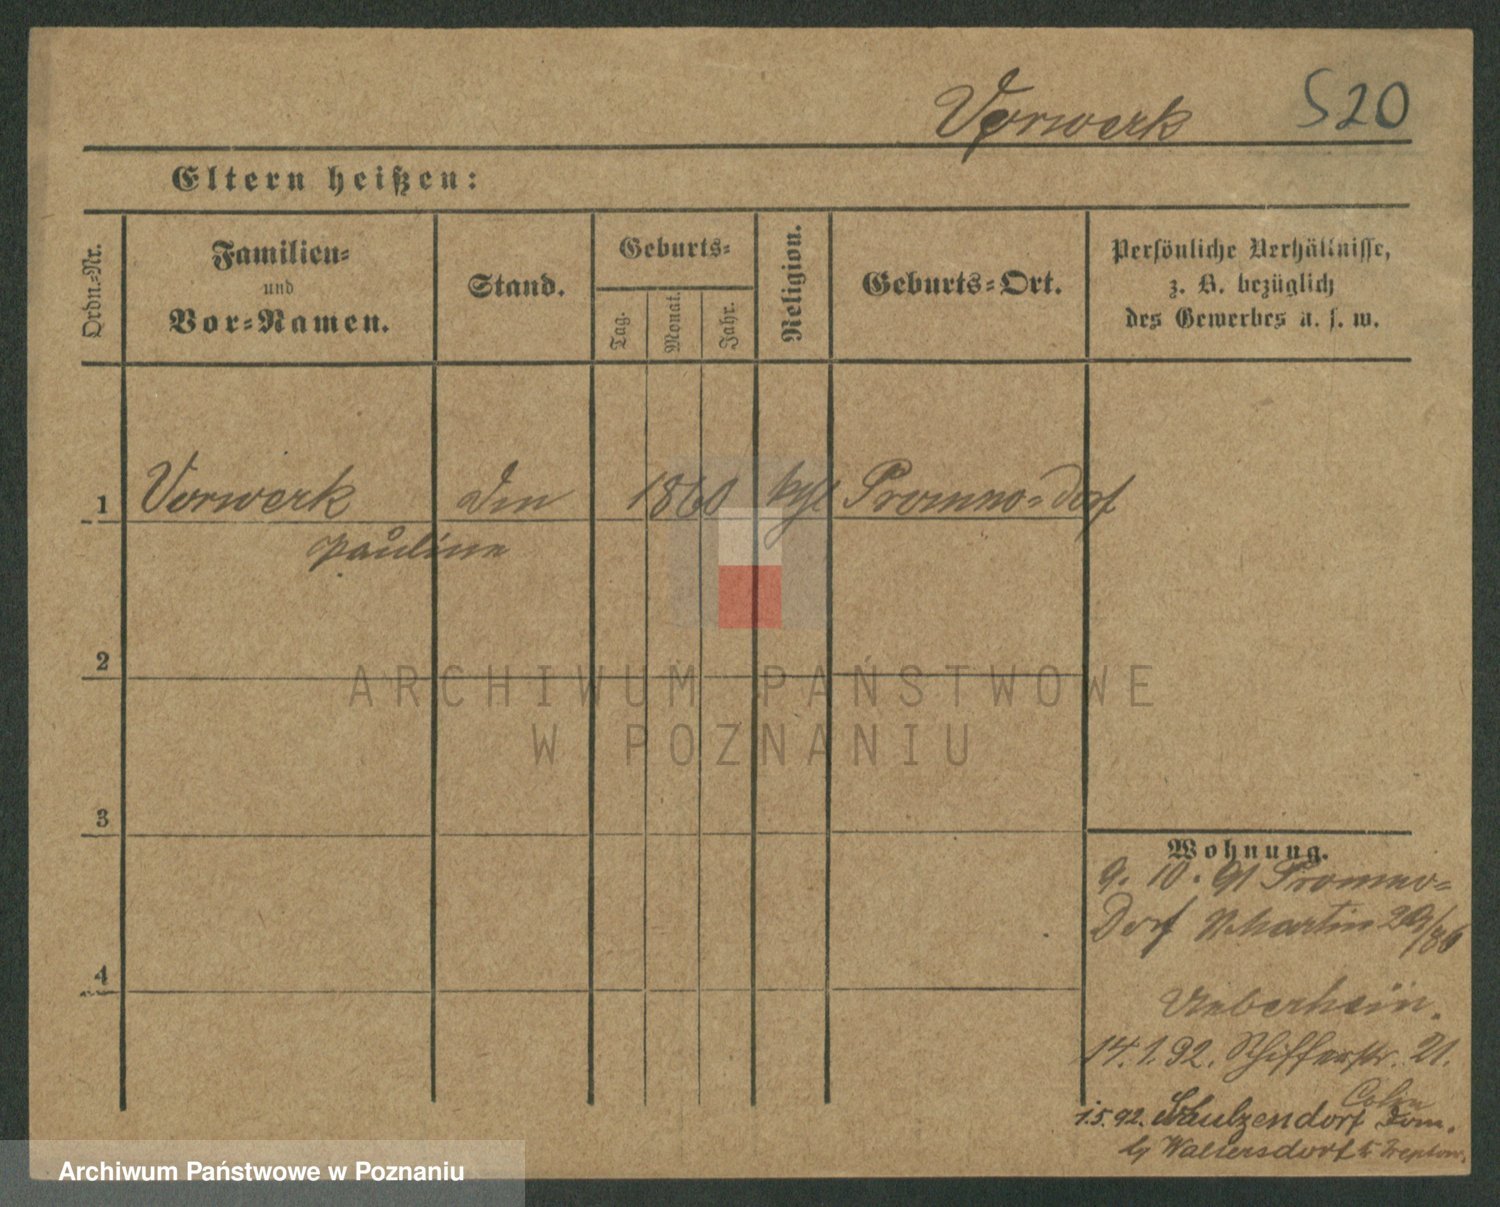 Vorwerk 520
Eltern heißen:
Ordn.-Nr.
Familien-
und
Vor-Namen.
Stand.
Geburts-
Tag.
Monat.
Jahr.
Religion.
Geburts-Ort.
Persönliche Verhältnisse,
z. B. bezüglich
des Gewerbes u. s. w.
1 Vorwerk 1860 Promno-dorf
Pauline
2
ARCHIWUM PAŃSTWOWE
W POZNANIU
3
Wohnung.
9. 10. 91 Promno-
Dorf Martin
4
14.1.92. Schifferstr. 21.
Cohn
1.5.92. Schulzendorf Dom.
Waltersdorf Treptow.
Archiwum Państwowe w Poznaniu